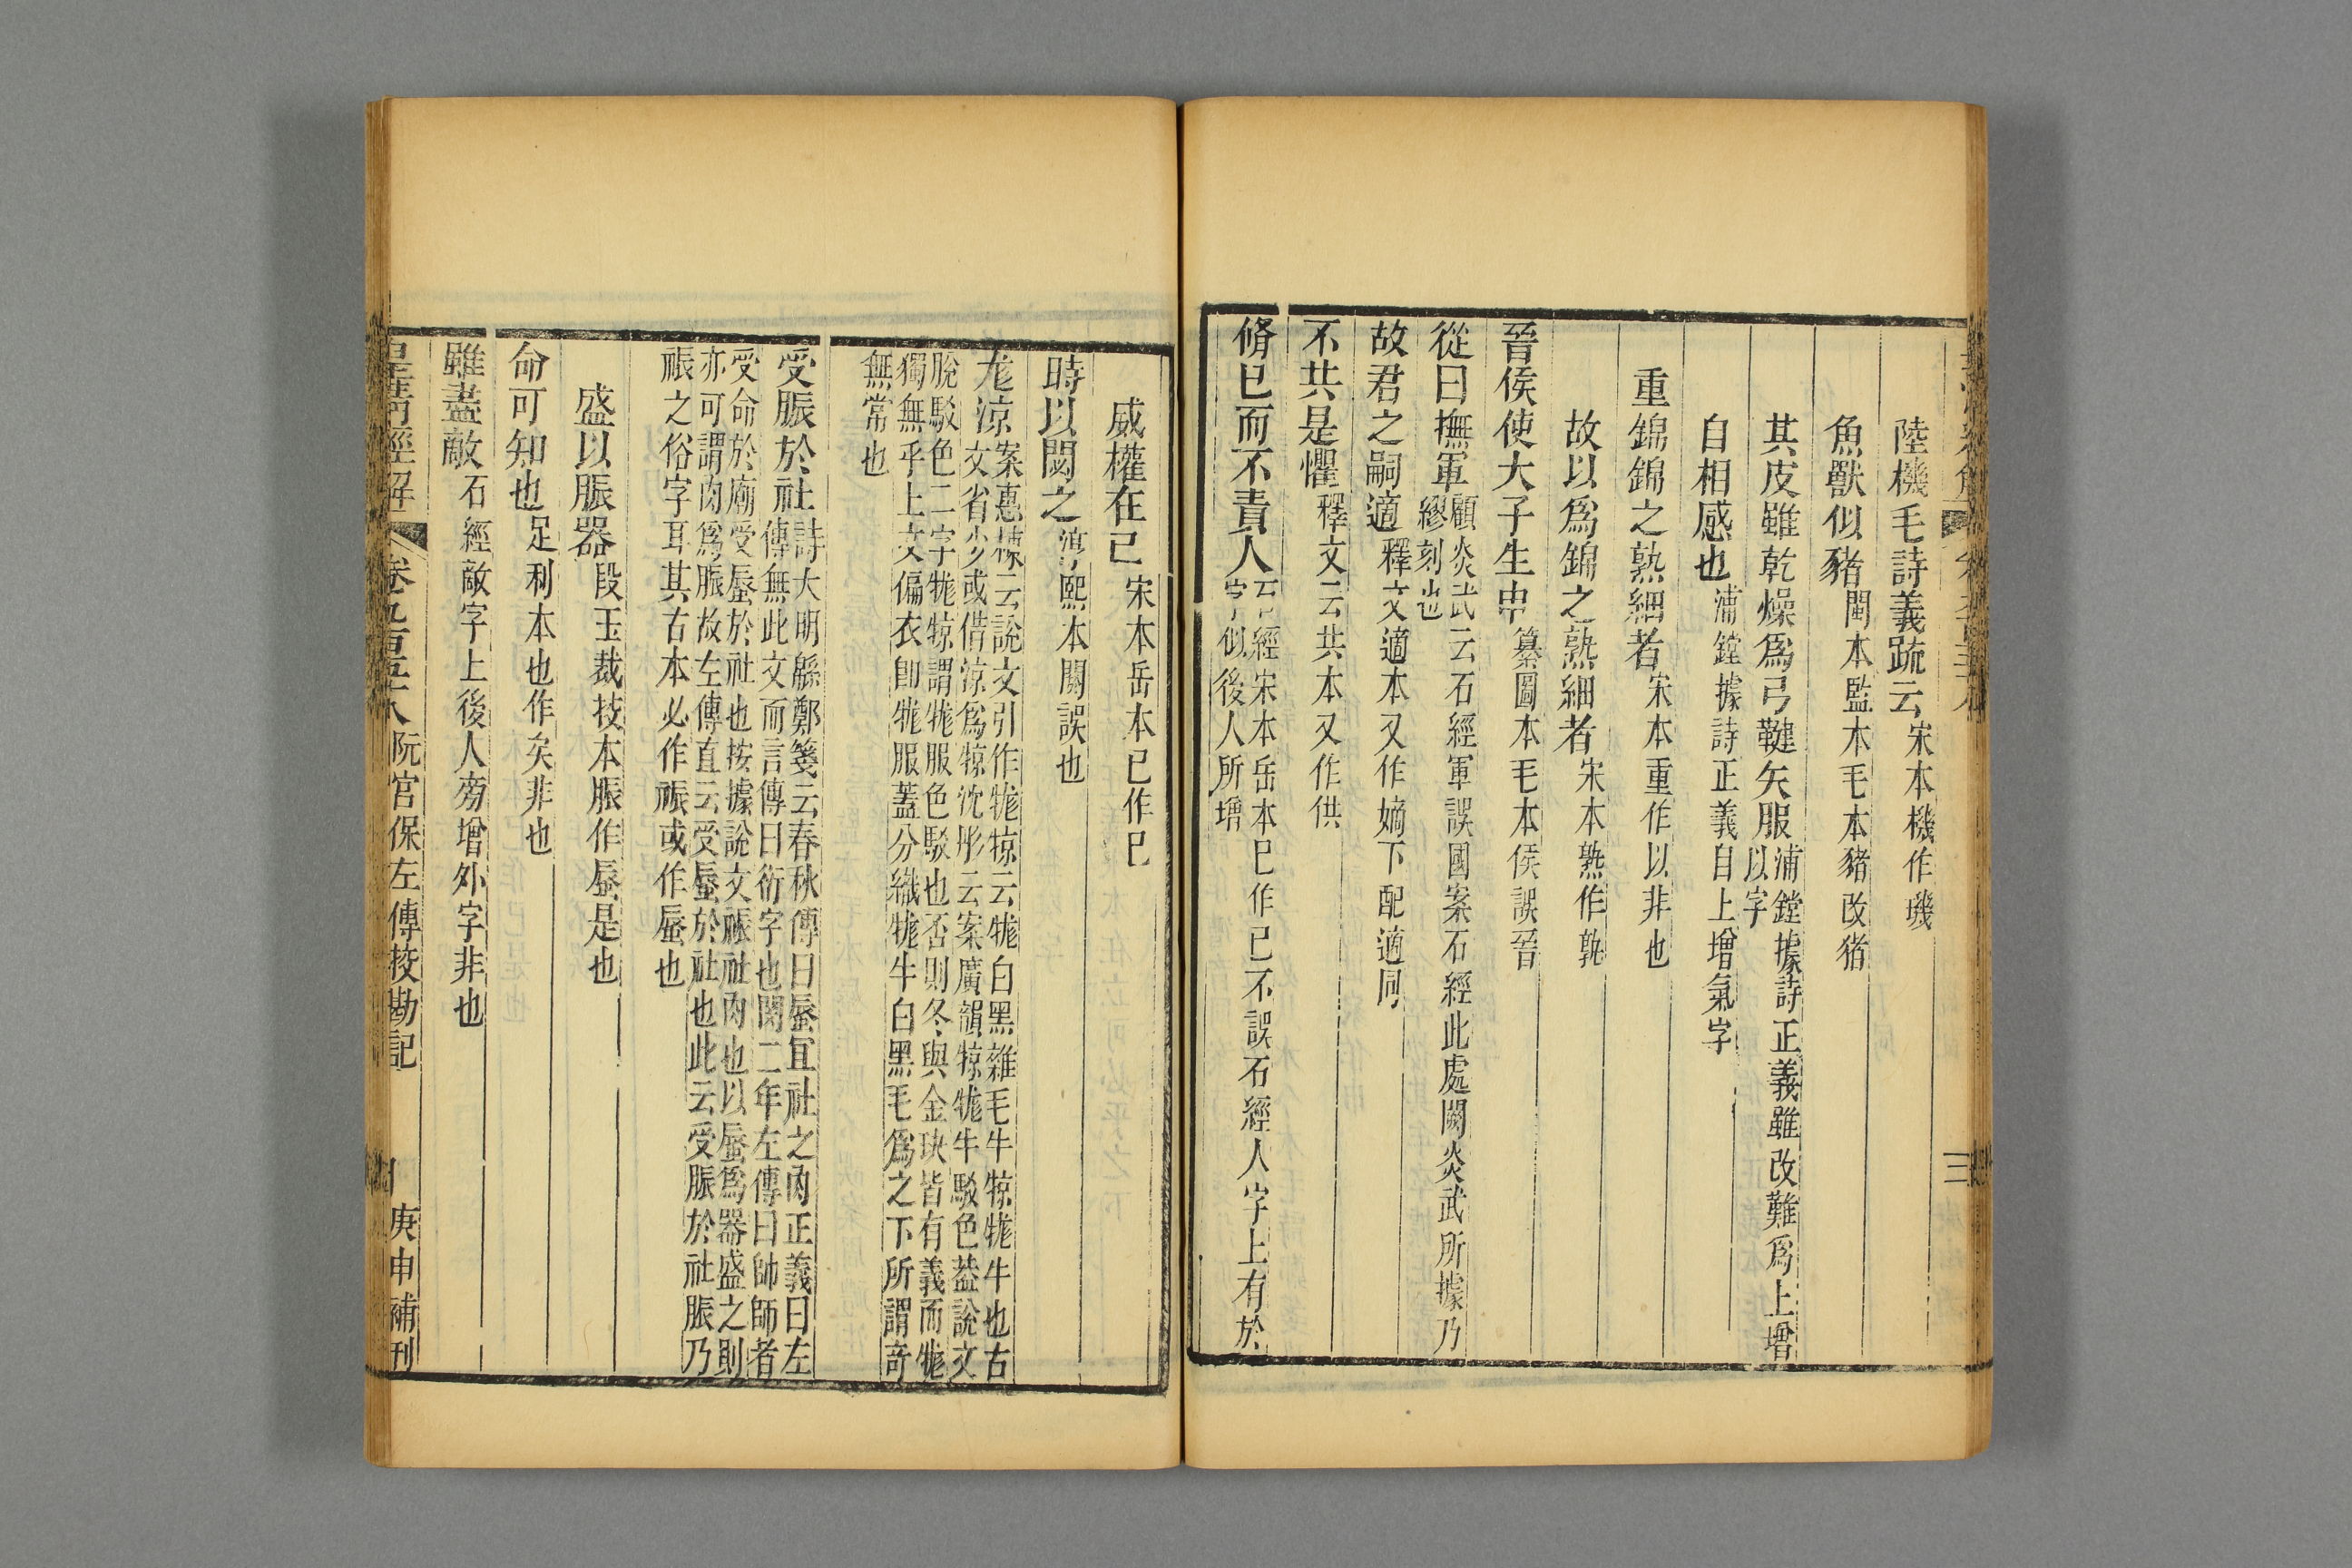 陸機毛詩義疏云宋本機作璣
魚獸似豬閩本監本毛本豬改猪
其皮雖乾燥爲弓鞬矢服浦鏜據詩正義雖改難爲上增以字
自相感也浦鏜據詩正義自上增氣字
重錦錦之熟細者宋本重作以非也
故以爲錦之熟細者宋本熟作孰
晉侯使大子生申纂圖本毛本侯誤晉
從曰撫軍顧炎武云石經軍誤國案石經此處闕炎武所據乃繆刻也
故君之嗣適釋文適本又作嫡下配適同
不共是懼釋文云共本又作供
脩已而不責人石經宋本岳本巳作己不誤石經人字上有於字似後人所增
威權在已宋本岳本已作巳
時以閟之淳熙本閟誤也
尨涼案惠棟云說文引作牻㹁云牻白黑雜毛牛㹁牻牛也古
文省少或借涼爲㹁沈彤云案廣韻㹁牻牛駁色葢說文
脫駁色二字牻㹁謂牻服色駁也否則冬與金玦皆有義而牻
獨無乎上文偏衣卽牻服蓋分織牻牛白黑毛爲之下所謂奇
無常也
受脤於社詩大明緜鄭箋云春秋傳曰蜃宜社之肉正義曰左
傳無此文而言傳曰衍字也閔二年左傳曰帥師者
受命於廟受蜃於社也按據說文祳社肉也以蜃爲器盛之則
亦可謂肉爲脤故左傳直云受蜃於社也此云受脤於社脤乃
祳之俗字耳其古本必作祳或作蜃也
盛以脤器段玉裁技本脤作蜃是也
命可知也足利本也作矣非也
雖盡敵石經敵字上後人旁增外字非也
皇淸經解 卷九百五十八 阮宮保左傳挍勘記 庚申補刊